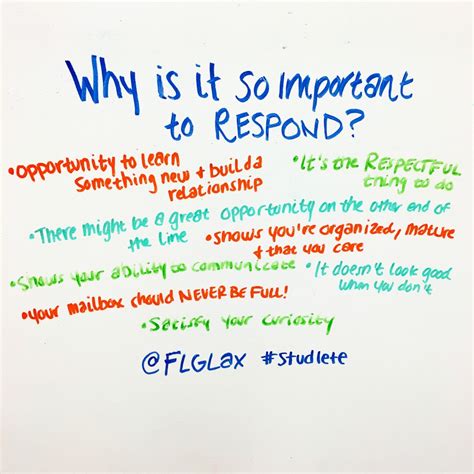 Why is it so important
to RESPOND?
•opportunity to learn
something new + build a
relationship
•It's the RESPECTFUL
thing to do
•There might be a great opportunity on the other end of
the line
•shows you're organized, mature
+ that you care
•Shows your ability to communicate
•It doesn't look good
when you don't
•your mailbox should NEVER BE FULL!
•Satisfy your curiosity
@FLGLax #studlete